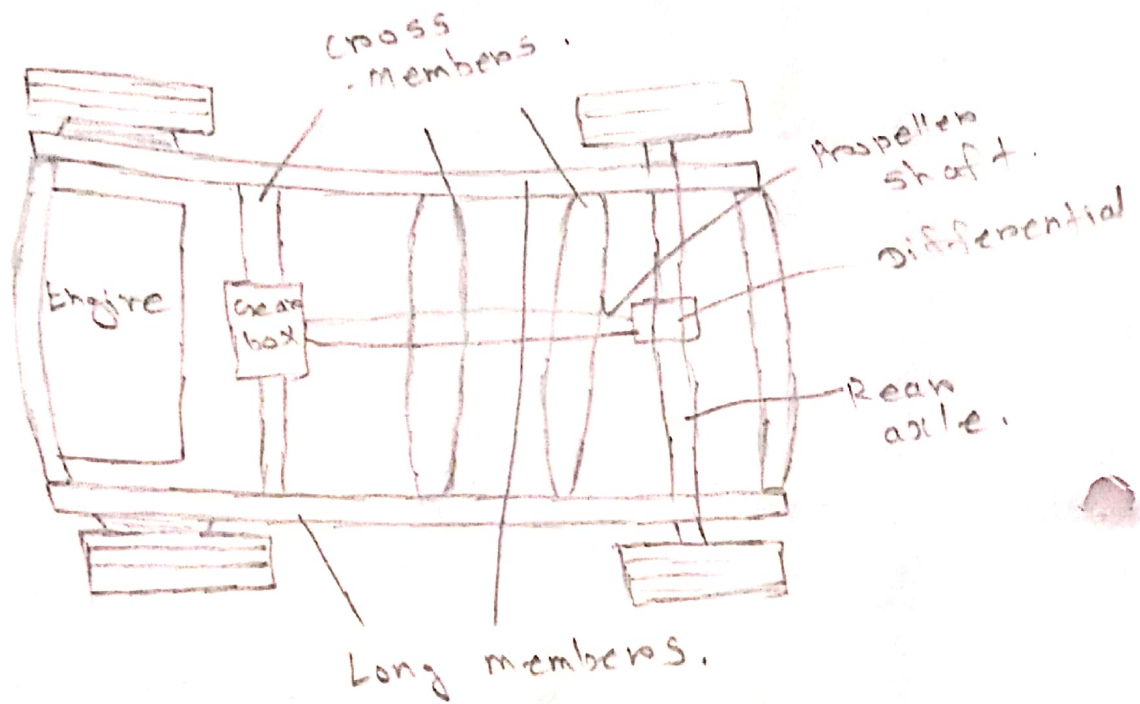 Cross
members.
Propeller
shaft.
Differential
Engine
Gear
box
Rear
axle.
Long members.